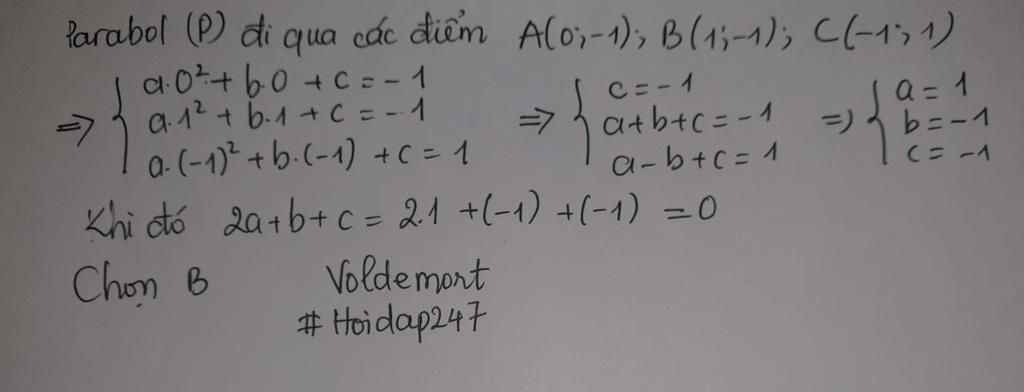 Parabol (P) đi qua các điểm A(0;-1); B(1;-1); C(-1;1)
=> { a.0² + b.0 + c = -1 => { c = -1 => { a = 1
a.1² + b.1 + c = -1 a+b+c = -1 b = -1
a.(-1)² + b.(-1) + c = 1 a-b+c = 1 c = -1
Khi đó 2a+b+c = 2.1 +(-1) +(-1) = 0
Chọn B Voldemort
#Hoidap247